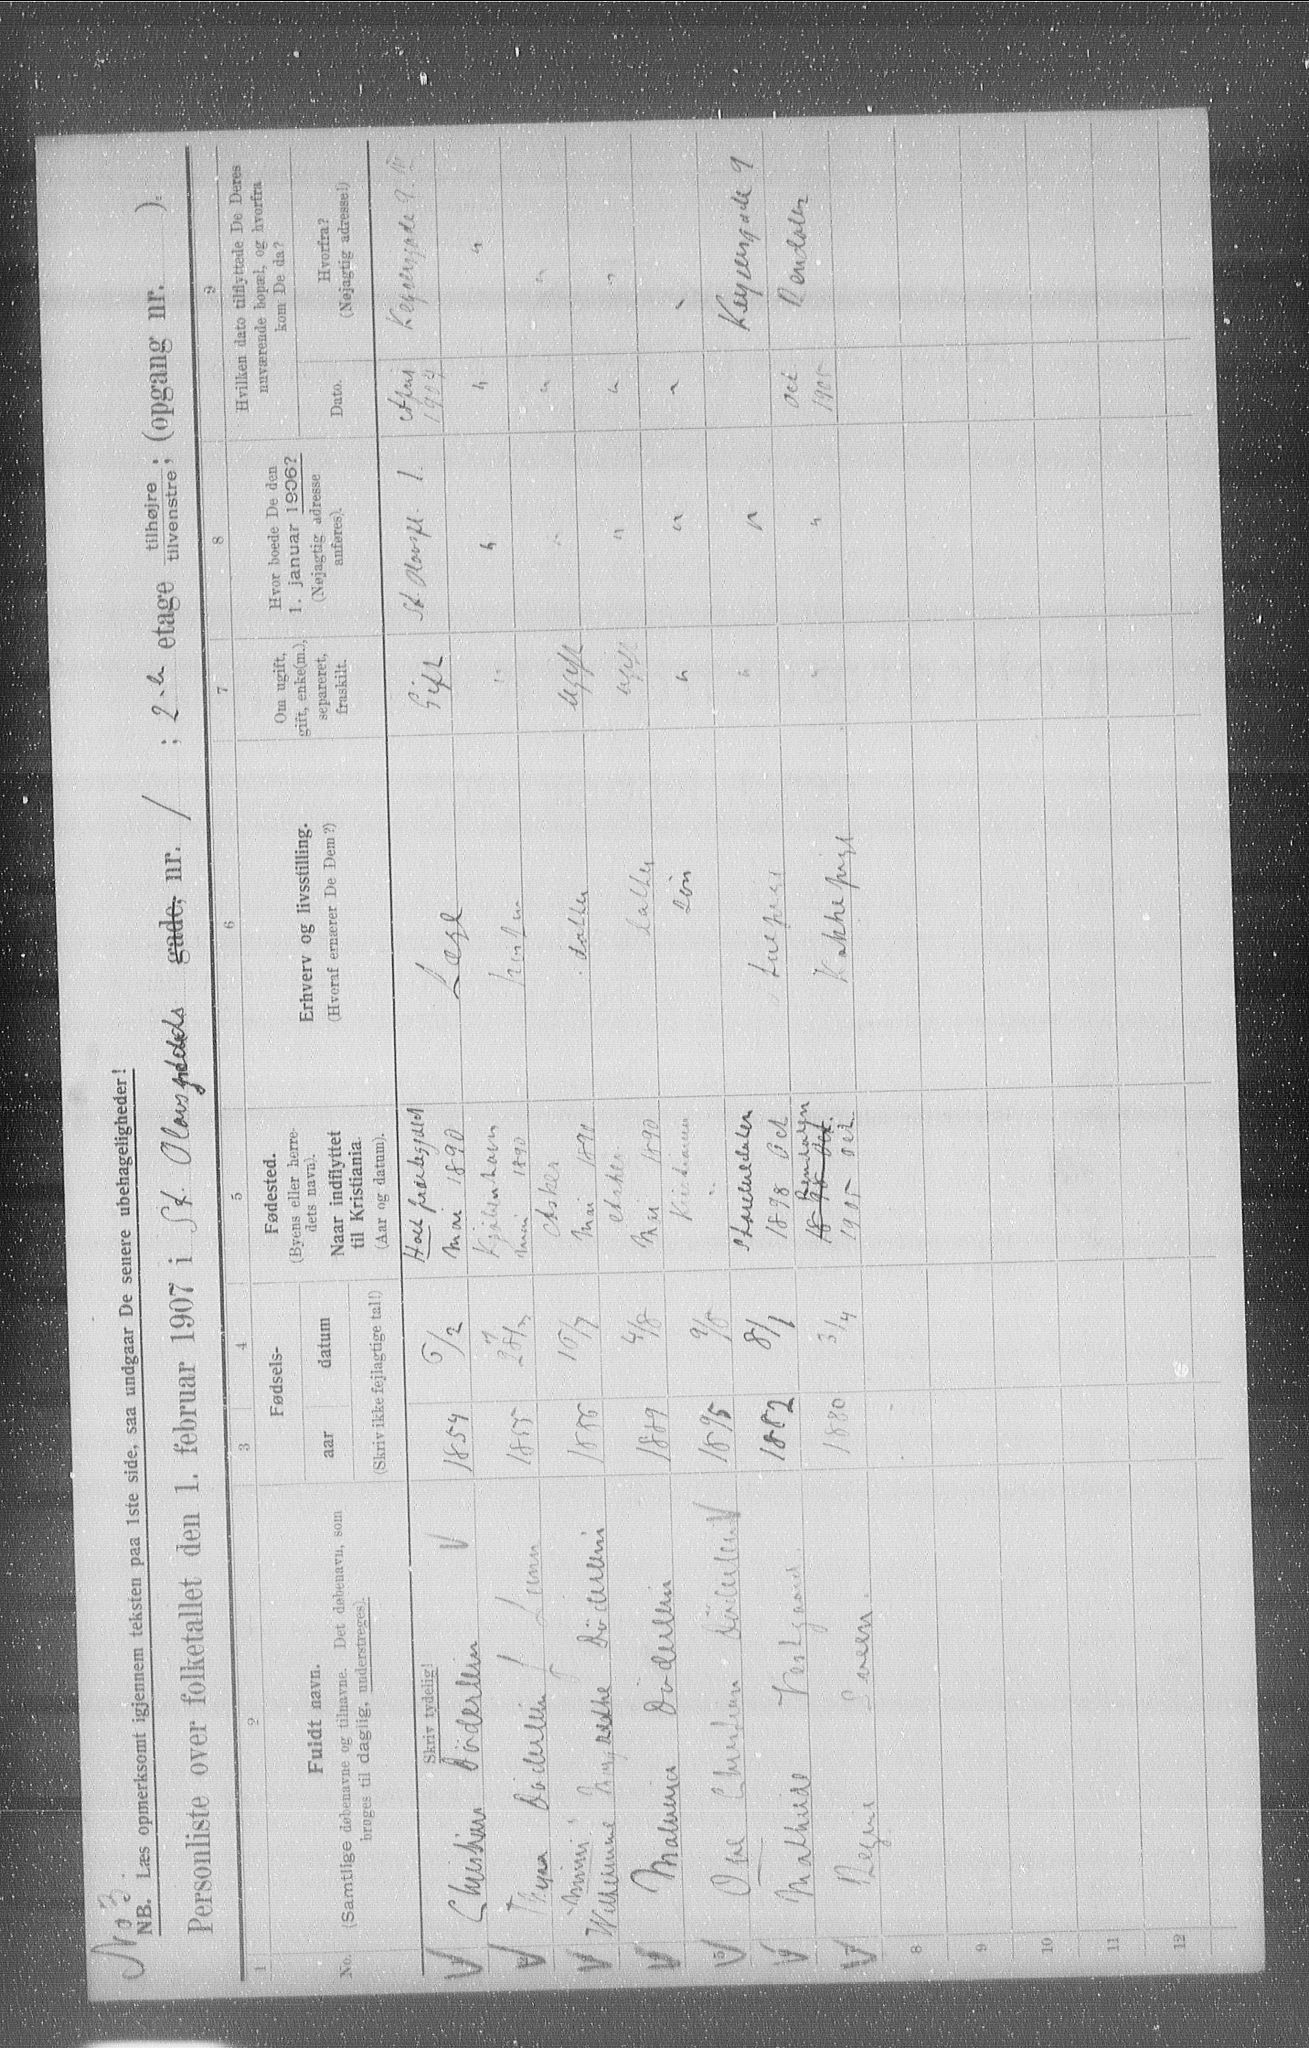 No 3.
NB. Læs opmerksomt igjennem teksten paa 1ste side, saa undgaar De senere ubehageligheder!
Personliste over folketallet den 1. februar 1907 i St. Olavs plads gade, nr. 1 ; 2den etage tilhøjre, tilvenstre; (opgang nr. ).
1 2 3 4 5 6 7 8 9
No.
Fuldt navn.
(Samtlige døbenavne og tilnavne. Det døbenavn, som
bruges til daglig, understreges).
Fødsels-
aar datum
(Skriv ikke fejlagtige tal!)
Fødested.
(Byens eller herre-
dets navn).
Naar indflyttet
til Kristiania.
(Aar og datum).
Erhverv og livsstilling.
(Hvoraf ernærer De Dem?)
Om ugift,
gift, enke(m.),
separeret,
fraskilt.
Hvor boede De den
1. januar 1906?
(Nøjagtig adresse
anføres).
Hvilken dato tilflyttede De Deres
nuværende bopæl, og hvorfra
kom De da?
Dato.
Hvorfra?
(Nøjagtig adresse!)
Skriv tydelig!
Christian Döderlein 1854 6/2 præstegjeld Mai 1890 Læge Gift St Olavspl. 1. April 1904 Keysersgade 9.
Thyra Döderlein f. Lunn 1855 Kjøbenhavn Mai 1890 hustru " " " "
"Mimi"
Wilhelmine Margrethe Döderlein 1886 Asker Mai 1890 datter Ugift " " "
Döderlein 1889 4/8 Asker Mai 1890 datter ugift " " "
5 Ove Christian Döderlein 1895 9/5 Kristiania " søn " " " "
Mathilde Vestgaard 1882 8/1 1898 Oct Stuepige " " Keysersgade 9
Regine Sveen. 1880 3/4 Rendalen 1898 Oct. 1905 Oct. Kokkepige " " Oct 1905 Rendalen
8
9
10
11
12